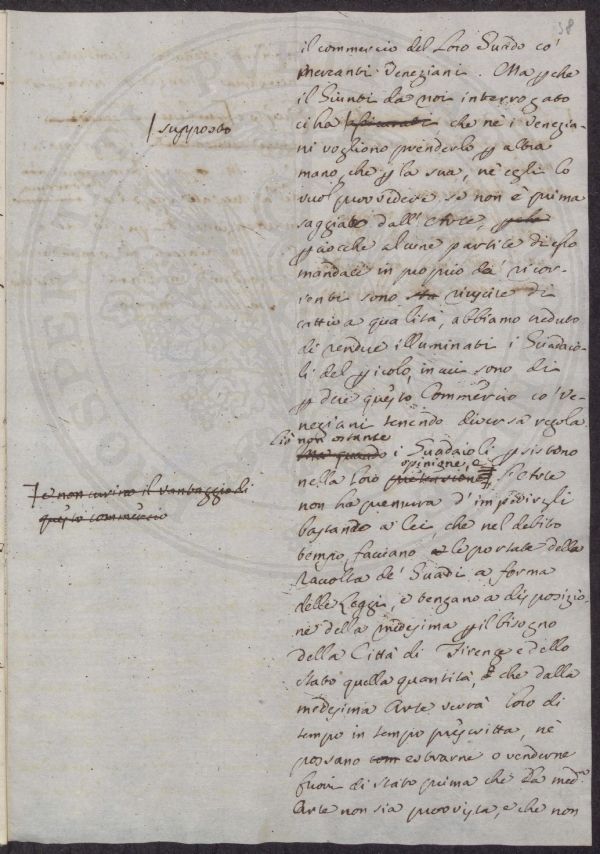 38
il commercio del Loro Guado co'
Mercanti Veneziani. Ma p che
il Giunti da noi interrogato
ci ha che nè i Venezia-
/ supposto
ni vogliono prenderlo p altra
mano, che p la sua, nè egli lo
vuol provvedere se non è prima
saggiato dall'Arte,
p alcune partite di
mandaci in proprio da' ricor-
renti sono riuscite di
cattiva qualità, abbiamo creduto
di rendere illuminati i Guadaio-
li del picolo, in cui sono di
p dere questo Commercio co' Ve-
neziani tenendo diversa regola.
Ciò non ostante
Ma quando i Guadaioli psistono
opinione, e
nella loro l'Arte
e non curino il vantaggio di
questo commercio
non ha premura d'impedirgli
bastando a lei, che nel debito
tempo facciano le portate della
Raccolta de' Guadi a forma
delle Leggi, e tengano a disposizio-
ne della medesima p il bisogno
della Città di Firenze e dello
stato quella quantità, che dalla
medesima Arte verrà loro di
tempo in tempo prescritta, nè
possano estrarne o venderne
fuori di stato prima che la med.ma
Arte non sia provvista, e che non